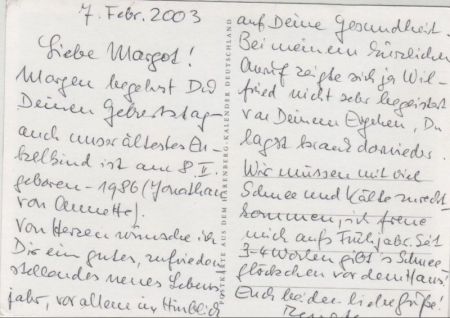 7. Febr. 2003
Liebe Margot!
Morgen begehst Du
Deinen Geburtstag –
auch unser ältestes En-
kelkind ist am 8. II.
geboren – 1986 (Jonathan
von Annette).
Von Herzen wünsche ich
Dir ein gutes, zufrieden
stellendes neues Lebens-
jahr, vor allem im Hinblick
POSTKARTE AUS DEM HARENBERG-KALENDER DEUTSCHLAND
auf Deine Gesundheit.
Bei meinem kürzlichen
Anruf zeigte sich ja Wil-
fried nicht sehr begeistert
von Deinem Ergehen, Du
lagst krank darnieder.
Wir müssen mit viel
Schnee und Kälte zurecht-
kommen, ich freue
mich aufs Frühjahr. Seit
3-4 Wochen gibt's Schnee-
glöckchen vor dem Haus!
Euch beiden liebe Grüße!
Renate